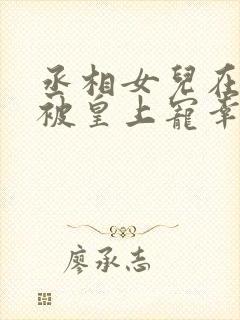 丞相女兒在
被皇上寵幸
廖承志